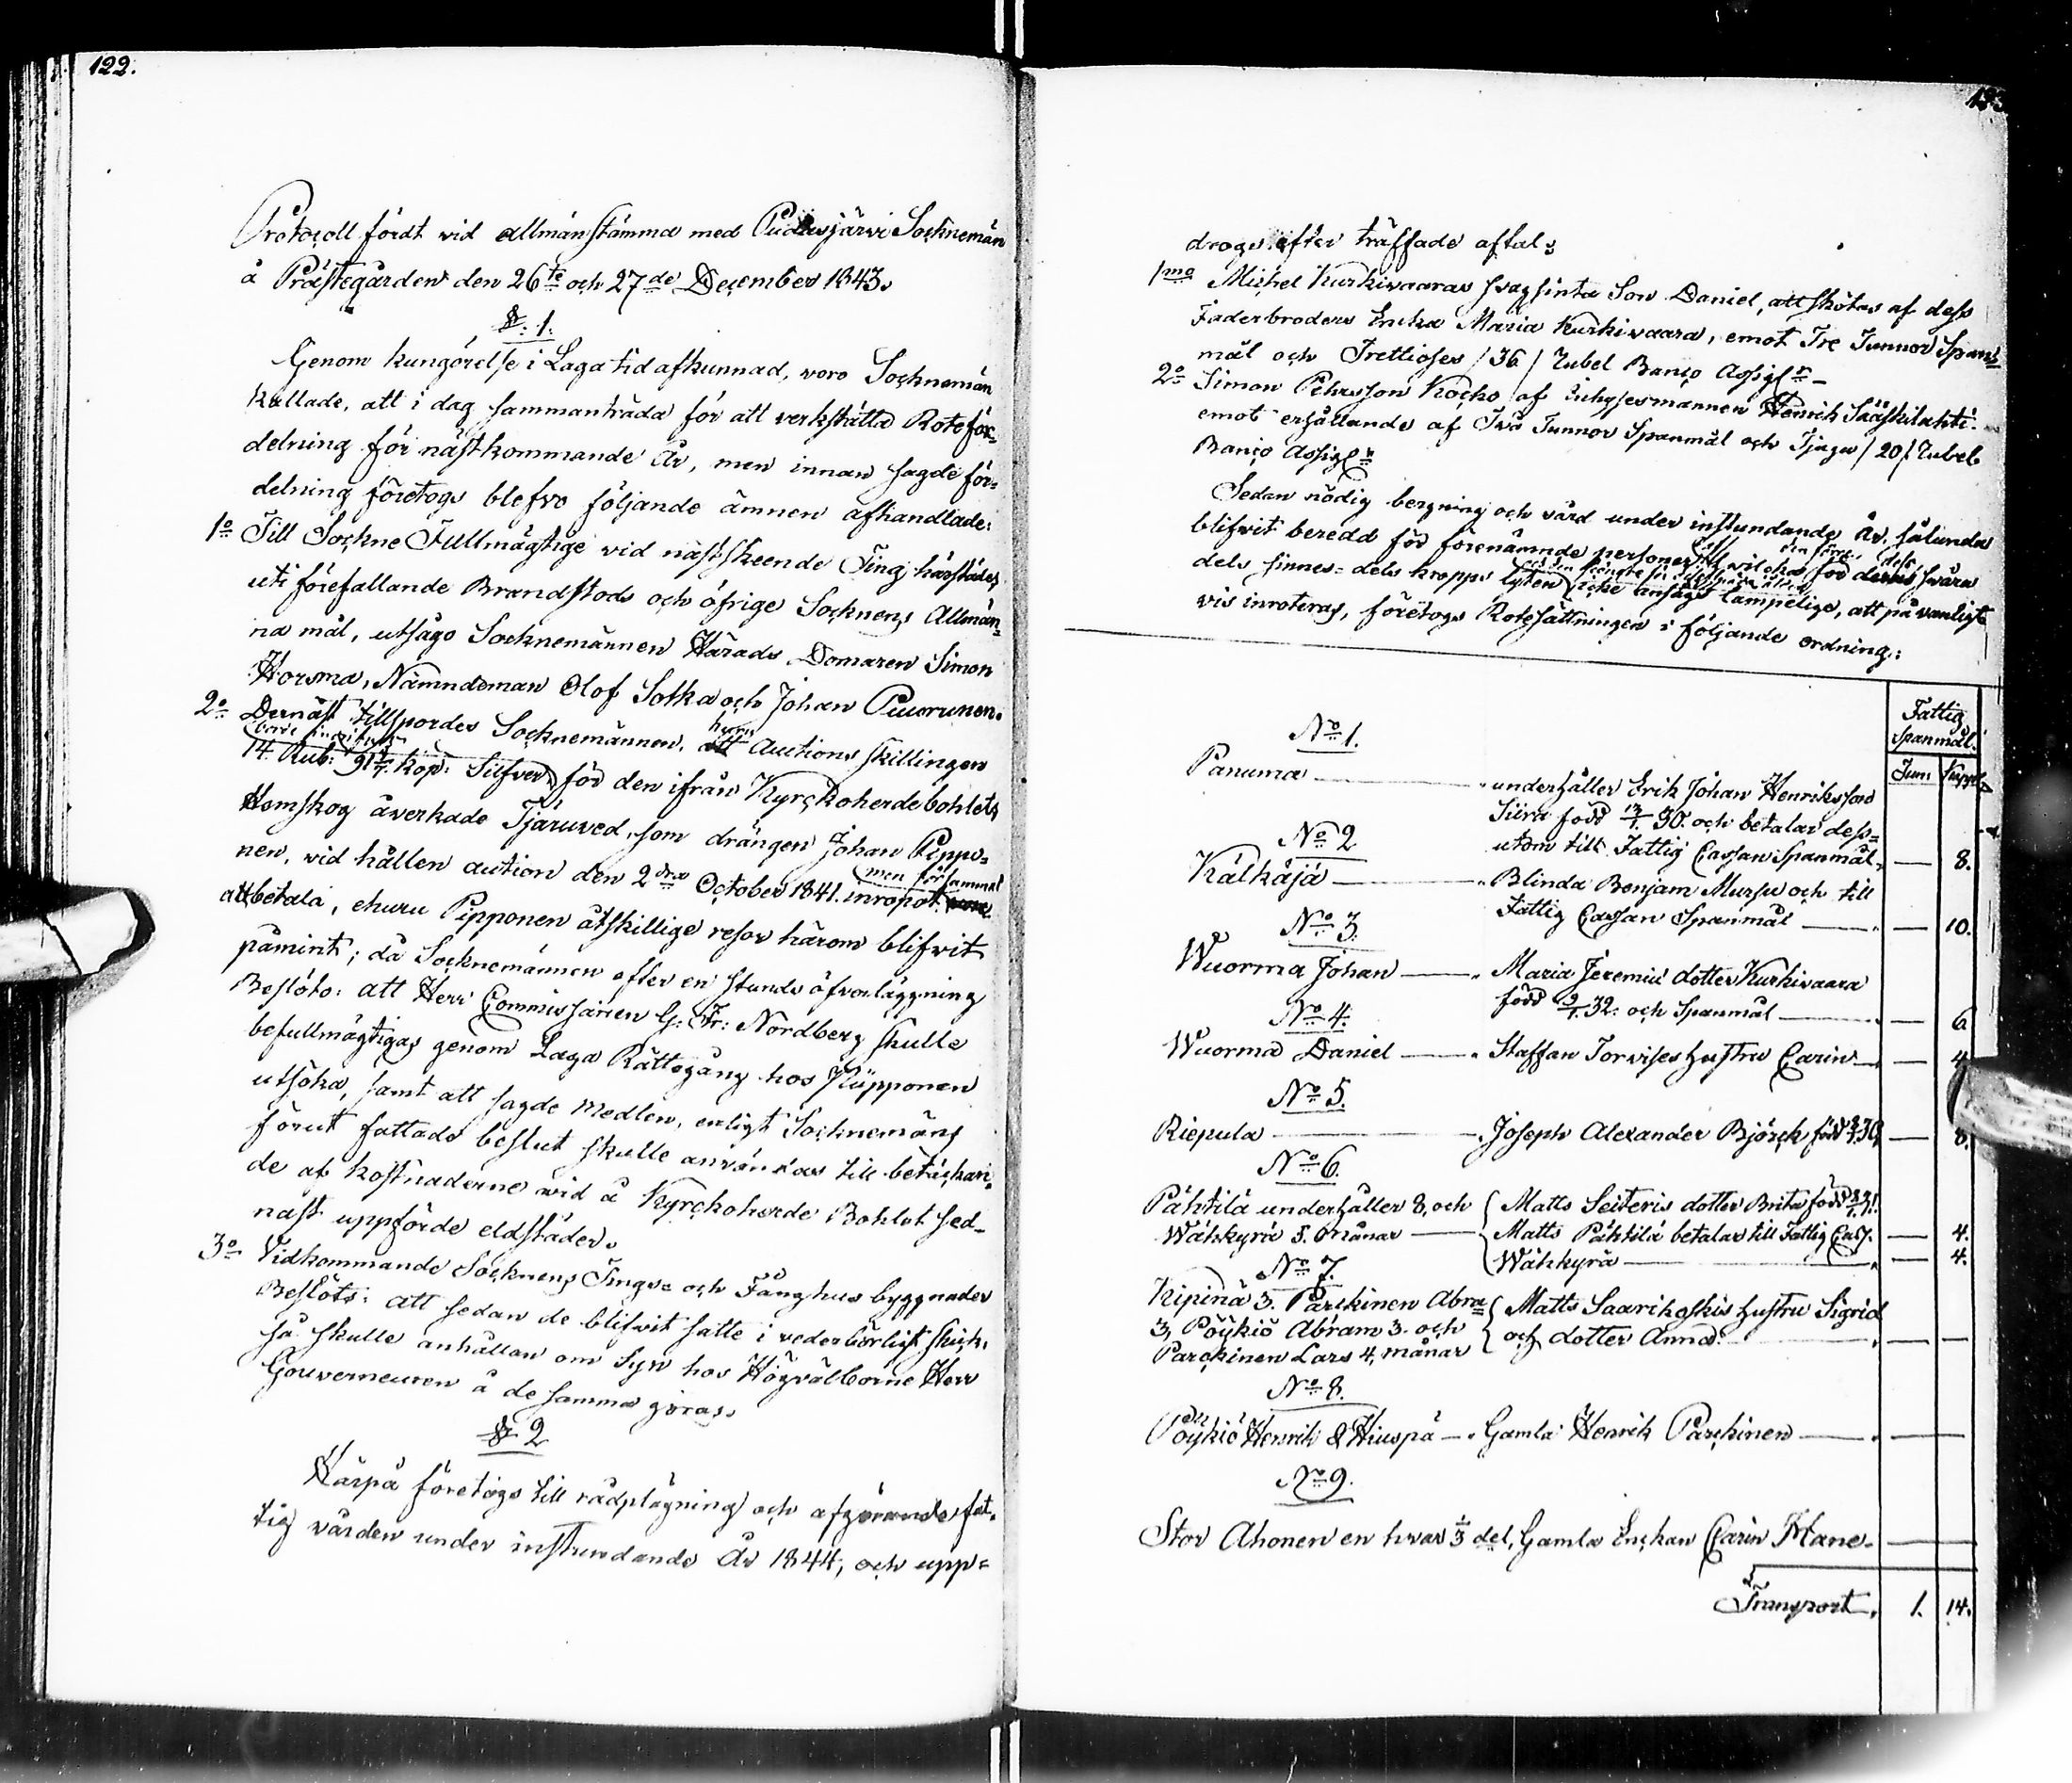 122.
Protocoll fördt vid allmän stämma med Pudasjärvi Socknemän
å Prästegården den 26te och 27de December 1843.
§. 1.
Genom kungörelse i Laga tid afkunnad, voro Socknemän
kallade, att i dag sammanträda för att verkställa Roteför-
delning för nästkommande År, men innan sagde för-
delning företogs blefvo följande ämnen afhandlade:
1o Till Sockne Fullmägtige vid nästskeende Ting härstädes,
uti förefallande Brandstods och öfrige Socknens Allmän-
na mål, utsågo Socknemännen Härads Domaren Simon
Horsma, Nämndeman Olof Sotka och Johan Puurunen.
2o Dernäst tillspordes Socknemännen, huru Auctions skillingen
14. Rub: 91 kop: Silfver, för den ifrån Kyrckoherdebohlets
Hemskog åverkade Tjäruved, som drängen Johan Pippo-
nen, vid hållen auction den 2dra October 1841. inropat men försummat
att betala, ehuru Pipponen åtskillige resor härom blifvit
påmint; då Socknemännen efter en stunds öfverläggning
Beslöto: att Herr Commissarien G: Fr: Nordberg skulle
befullmägtigas genom Laga Rättegång hos Pipponen
utsöka, samt att sagde medlen, enligt Socknemäns
förut fattade beslut skulle användas till betäckan-
de af kostnaderne vid å Kyrckoherde Bohlet sed-
nast uppförde eldstäder.
3o Vidkommande Socknens Tings- och Fånghus byggnader
Beslöts: att sedan de blifvit satte i vederbörligt skick,
så skulle anhållan om Syn hos Högvälborne Herr
Gouverneuren å de samma göras.
§ 2
Härpå företogs till rådplägning och afgörande fat-
tig vården under instundande År 1844, och upp-
drogs efter träffade aftal:
1mo Michel Kurkivaaras svagsinta Son Daniel, att skötas af dess
Faderbroders Encka Maria Kurkivaara, emot Tre Tunnor Span-
mål och Trettiosex /36/ Rubel Banco Assigr
2o Simon Pehrsson Kocko af Inhysesmannen Henrik Sääskilahti
emot erhållande af Två Tunnor Spanmål och Tjugu /20/ Rubel
Banco Assigr
Sedan nödig bergning och vård under instundande År, sålunda
blifvit beredd för förenämnde personer, wilcka för deras svåra
dels sinnes- dels kropps lyten icke ansågs lämpelige, att på vanligt
vis inroteras, företogs Rotesättningen i följande ordning:
Fattig
Spanmål.
Tun: Kapp
No 1.
Panuma — underhåller Erik Johan Henriksson
Siira född 30. och betalar dess-
utom till Fattig Cassan Spanmål — 8.
No 2
Kälkäjä — Blinda Benjam Mursu och till
Fattig Cassan Spanmål — 10.
No 3.
Wuorma Johan — Maria Jeremiæ dotter Kurkivaara
född 32. och Spanmål — 6
No 4.
Wuorma Daniel — Staffan Torvises hustru Carin — 4
No 5.
Riepula — Joseph Alexander Björck född 30 — 8.
No 6.
Pähtilä underhåller 8, och Matts Seiteris dotter Brita född
Wähkyrä 5. månar — Matts Pähtilä betalar till Fattig Cass. — 4.
Wähkyrä — 4.
No 7.
Kipinä 3. Parckinen Abra- Matts Saarikoskis hustru Sigrid
3, Pöykiö Abram 3. och och dotter Anna.
Parckinen Lars 4, månar
No 8.
Pöykiö Henrik & Hiuspä — Gamla Henrik Parckinen —
No 9.
Stor Ahonen en hvar 1/3 del, Gamla Enckan Carin Mane-
Transport. 1. 14.